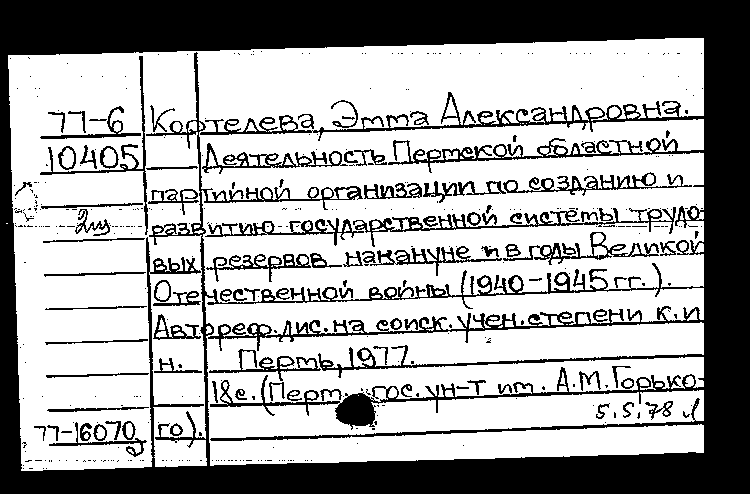 77-6 Кортелева, Эмма Александровна.
10405 Деятельность Пермской областной
партийной организации по созданию и
2 развитию государственной системы трудо-
вых резервов накануне и в годы Великой
Отечественной войны (1940-1945 гг.).
Автореф. дис. на соиск. учен. степени к. и.
н. Пермь, 1977.
18 с. (Перм. гос. ун-т им. А.М. Горько-
5.5.78
77-16070 го).